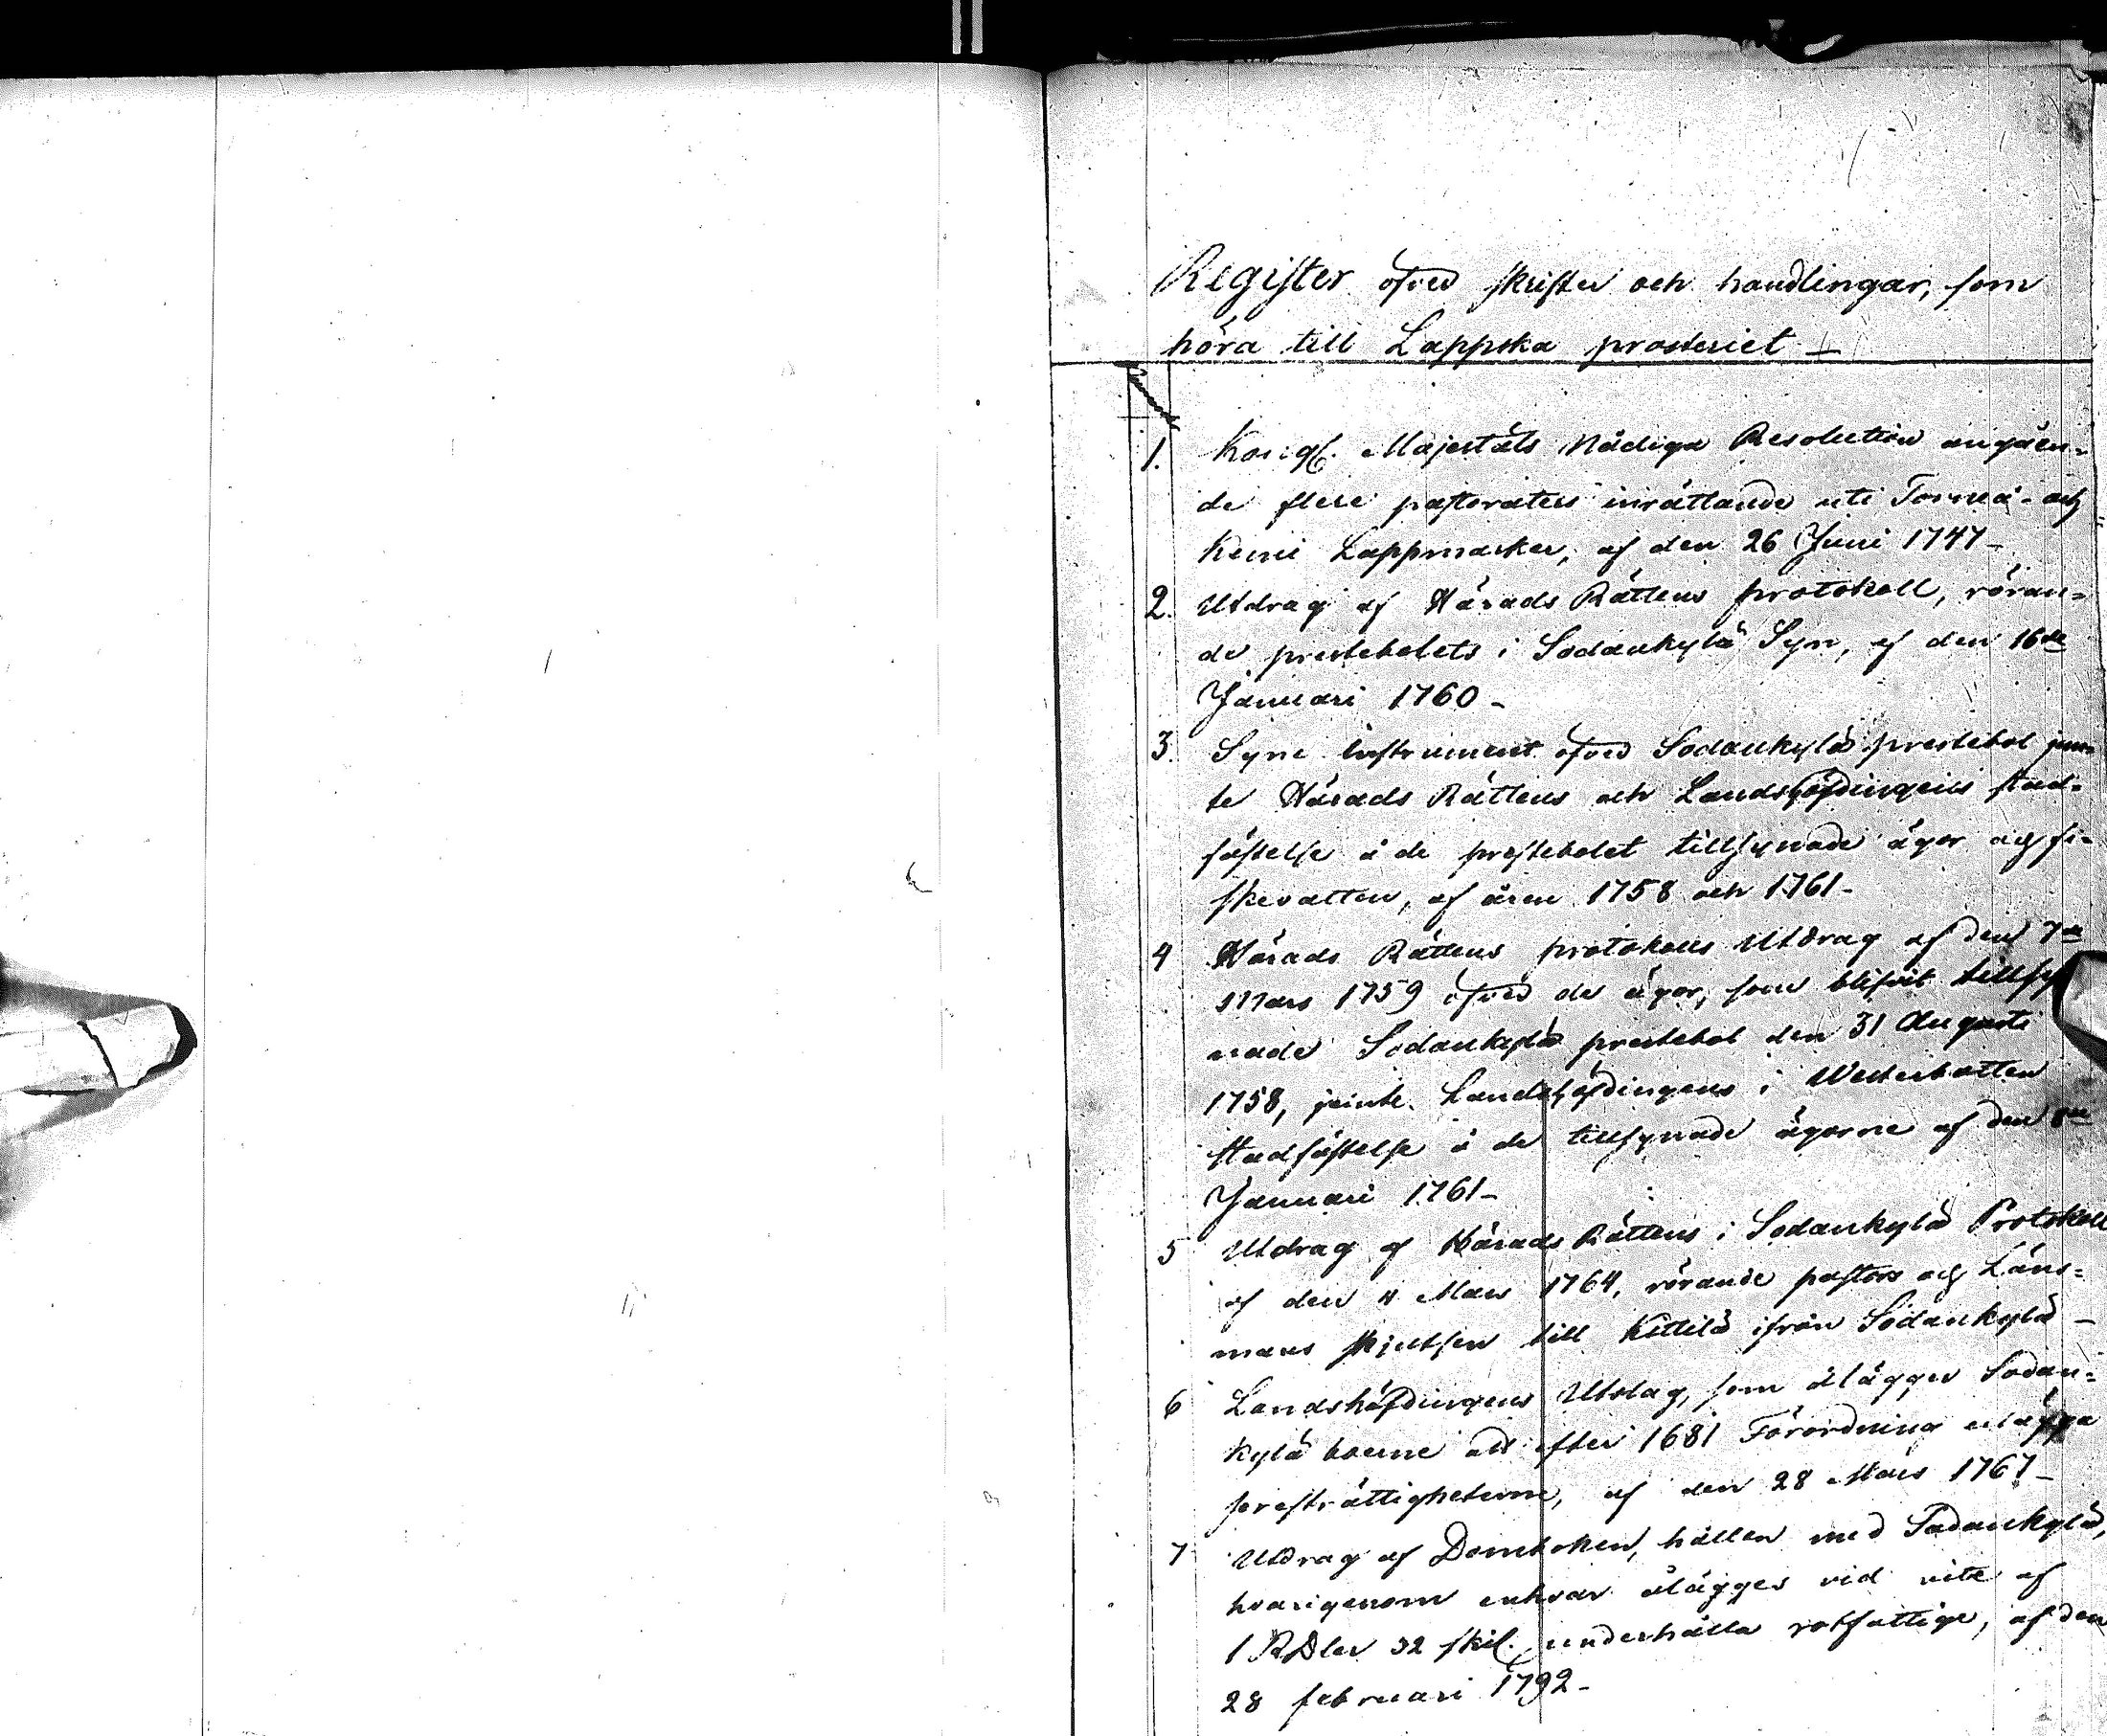 Register öfver skrifter och handlingar, som
höra till Lappska prosteriet –
1. Kongl. Majestäts Nådiga Resolution angåen-
de flere pastoraters inrättande uti Torneå- och
Kemi Lappmarker, af den 26 Juni 1747 –
2. Utdrag af Härads Rättens protokoll, röran-
de prestebolets i Sodankylä Syn, af den 16de
Januari 1760 –
3. Syne instrument öfver Sodankylä prestebol jem-
te Härads Rättens och Landshöfdingens stad-
fästelse å de prestebolet tillsynade ägor och fi-
skevatten, af åren 1758 och 1761 –
4 Härads Rättens protokolls Utdrag af den 7de
Mars 1759 öfver de ägor, som blifvit tillsy
nade Sodankylä prestebol den 31 Augusti
1758, jemte Landshöfdingens i Westerbotten
stadfästelse å de tillsynade ägorne af den 8de
Januari 1761 –
5 Utdrag af Härads Rättens i Sodankylä Protokoll
af den 4 Mars 1764, rörande pastors och Läns-
mans skjutsen till Kittilä ifrån Sodankylä –
6 Landshöfdingens Utslag, som ålägger Sodan-
kylä boerne att efter 1681 Förordning utlägga
presträttigheterne, af den 28 Mars 1767 –
7 Utdrag af Domboken, hållen med Sodankylä,
hvarigenom enhvar ålägges vid vite af
1 RDler 32 skil. underhålla rotfattige, af den
28 februari 1792 –